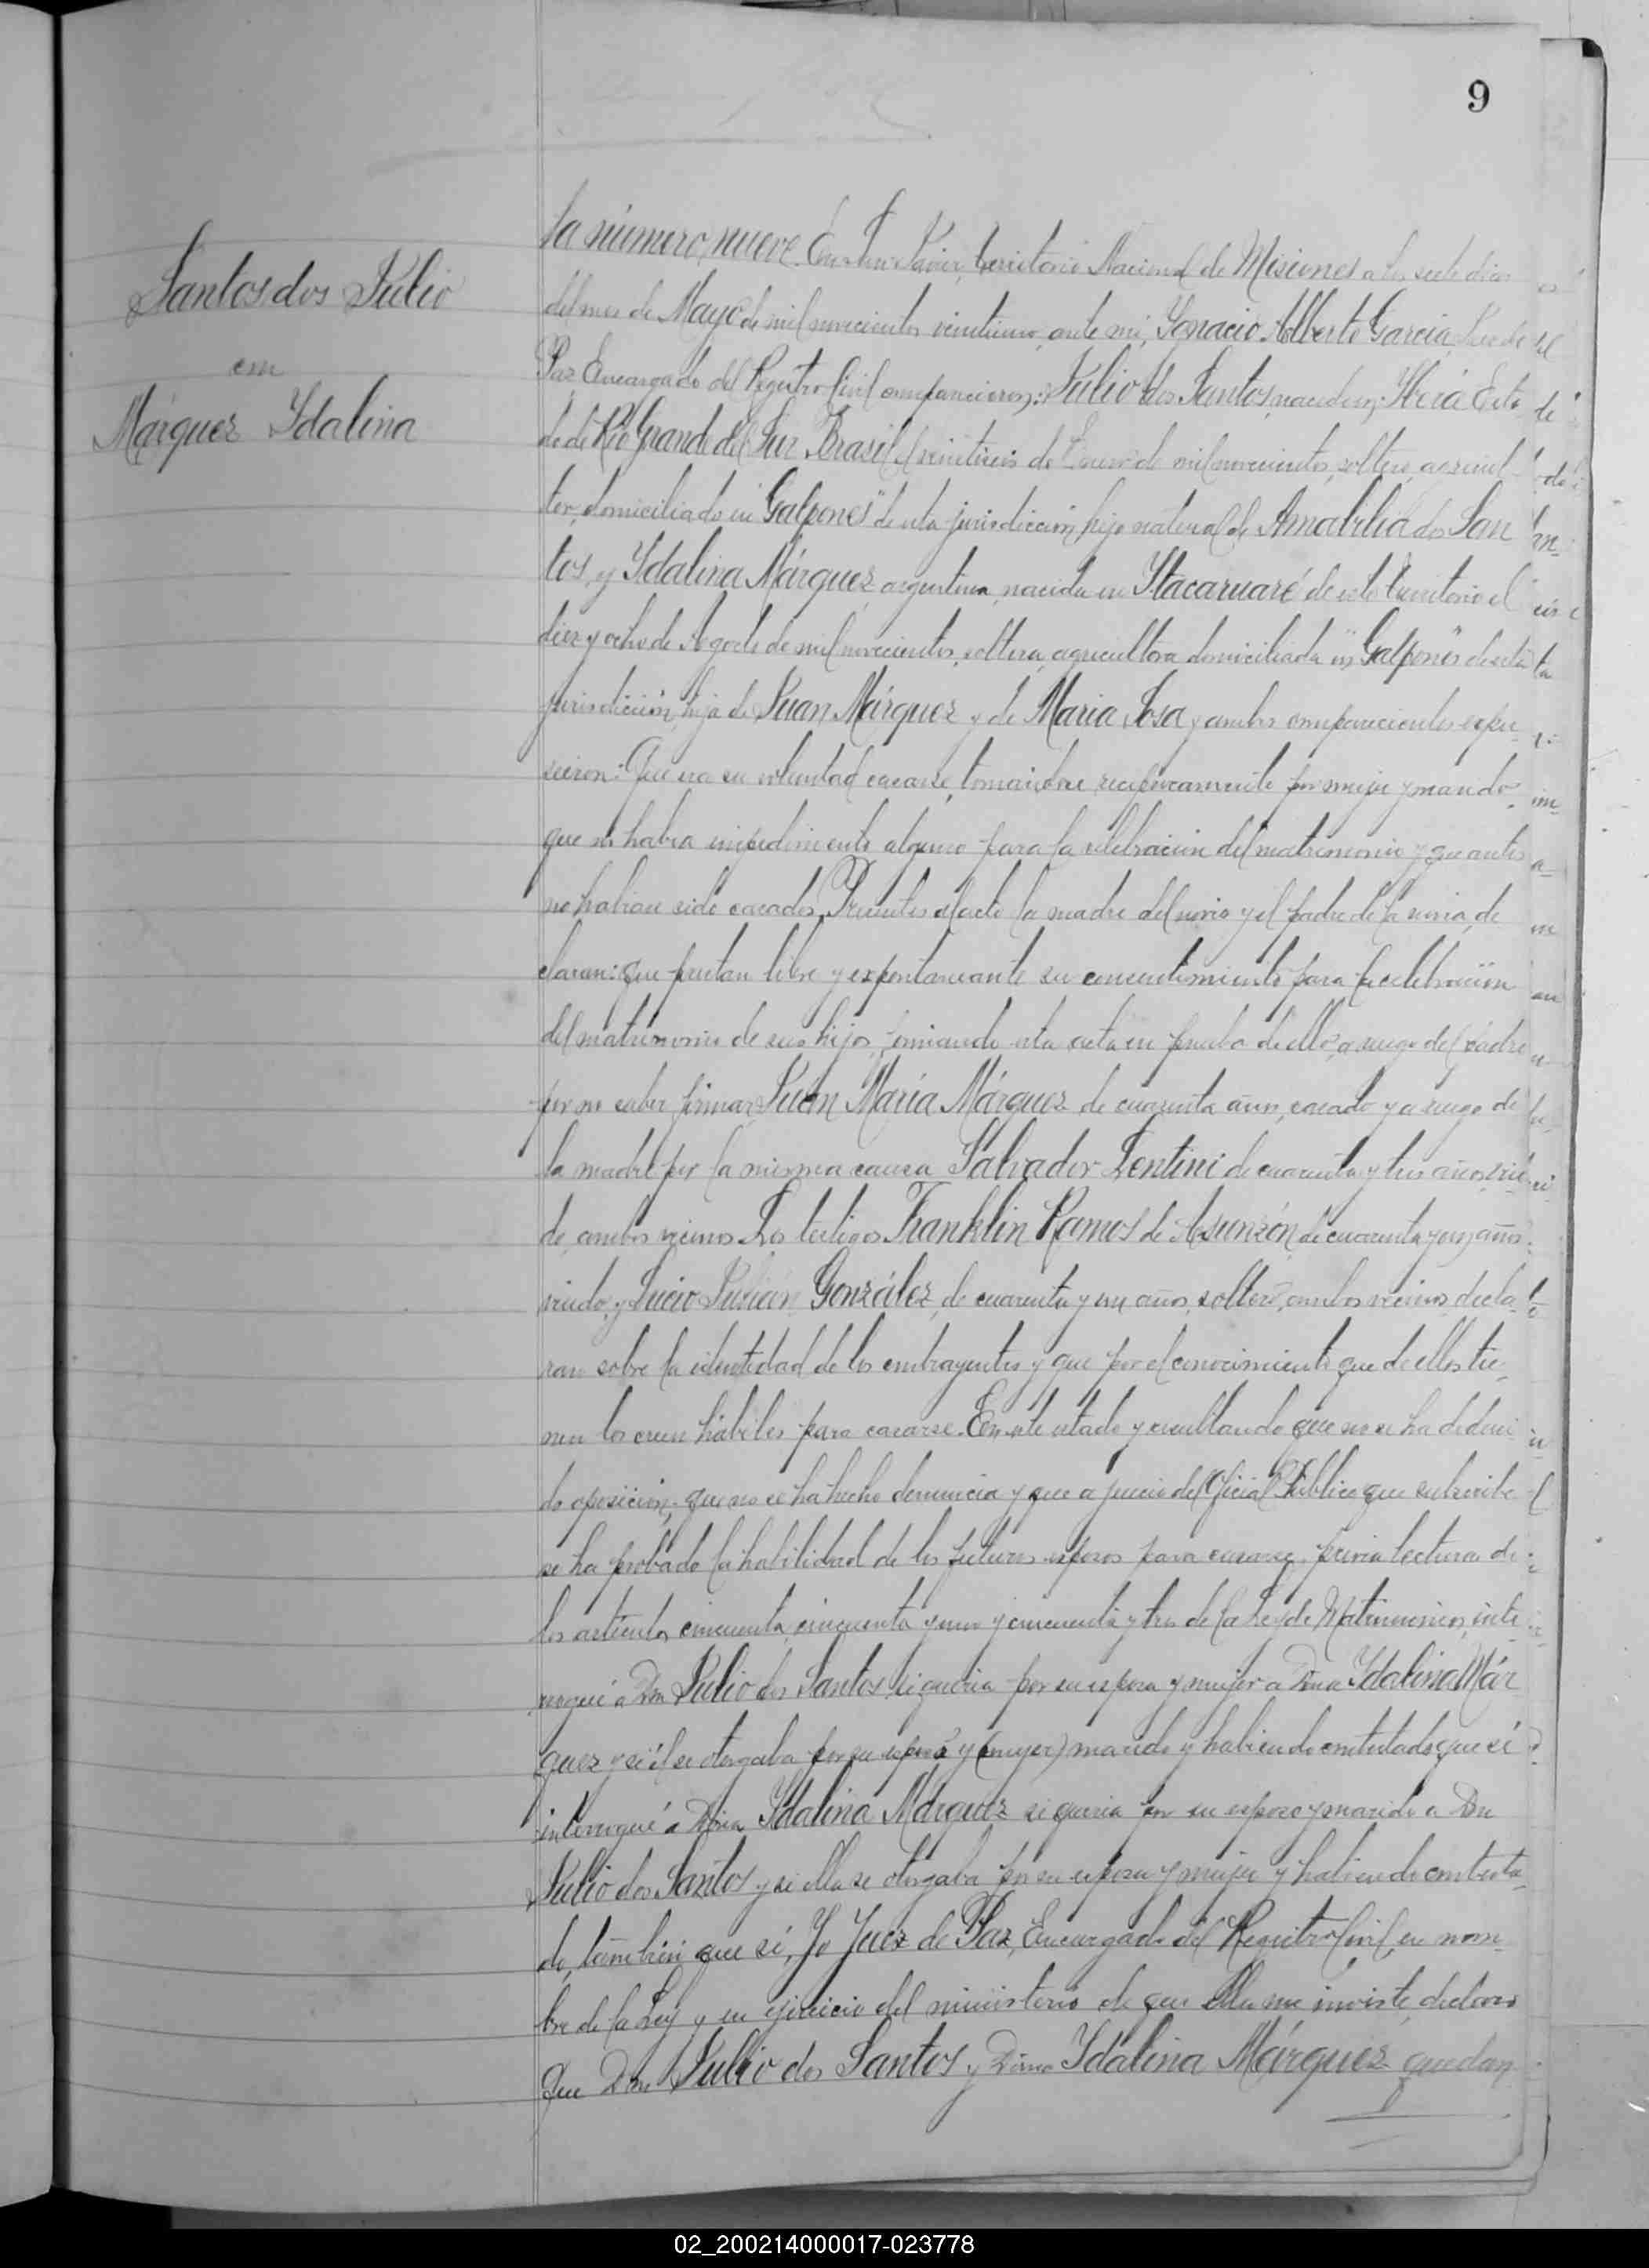 9
Santos dos Julio
con
Márquez Ydalina
ta número nueve. En San Javier, Territorio Nacional de Misiones a los siete dias
del mes de Mayo de mil novecientos veintiuno, ante mi, Ygnacio Alberto Garcia, Juez de
Paz Encargado del Registro Civil comparecieron: Julio dos Santos, nacido en Esta
do de Rio Grande del Sur, Brasil el veintiseis de Enero de mil novecientos, soltero, agricul
tor, domiciliado en "Galpones" de esta jurisdicción, hijo natural de Amabilia dos San
tos, y Ydalina Márquez, argentina, nacida en Ytacaruaré de este territorio el
diez y ocho de Agosto de mil novecientos, soltera, agricultora domiciliada en "Galpones" de esta
jurisdicción, hija de Juan Márquez y de Maria Sosa, y ambos comparecientes expu
sieron: Que era su voluntad casarse, tomandose reciprocamente por mujer y marido,
que no habia impedimento alguno para la celebracion del matrimonio y que antes
no habian sido casados. Presentes al acto la madre del novio y el padre de la novia, de
claran: que prestan libre y expontaneante su consentimiento para la celebración
del matrimonio de sus hijos, firmando esta acta en prueba de ello, a ruego del padre
por no saber firmar, Juan Maria Márquez de cuarenta años, casado y a ruego de
la madre por la misma causa Salvador Lentini de cuarenta y tres años, viu
do, ambos vecinos. Los testigos Franklin Ramos de Asunzón, de cuarenta y un años
viudo, y Lucio Julián González, de cuarenta y un años, soltero, ambos vecinos, decla-
ran sobre la identidad de los contrayentes y que por el conocimiento que de ellos tie-
nen los creen hábiles para casarse. En este estado y resultando que no se ha deduci
do oposición, que no se ha hecho denuncia y que a juicio del Oficial Público que subscribe
se ha probado la habilidad de los futuros esposos para casarse, previa lectura de
los artículos cincuenta, cincuenta y uno y cincuenta y tres de la Ley de Matrimonios, inte
rrogué a Don Julio dos Santos, si queria por su esposa y mujer a Doña Ydalina Már
quez y si él se otorgaba por su esposo y (mujer) marido y habiendo contestado que sí
interrogué á Doña Ydalina Márquez si queria por su esposo y marido a Don
Julio dos Santos y si ella se otorgaba por su esposa y mujer y habiendo contesta-
do, también que sí, Yo Juez de Paz, Encargado del Registro Civil, en nom-
bre de la Ley y en ejercicio del ministerio de que Ella me inviste, declaro
Que Don Julio dos Santos y Doña Ydalina Márquez quedan
02_200214000017-023778